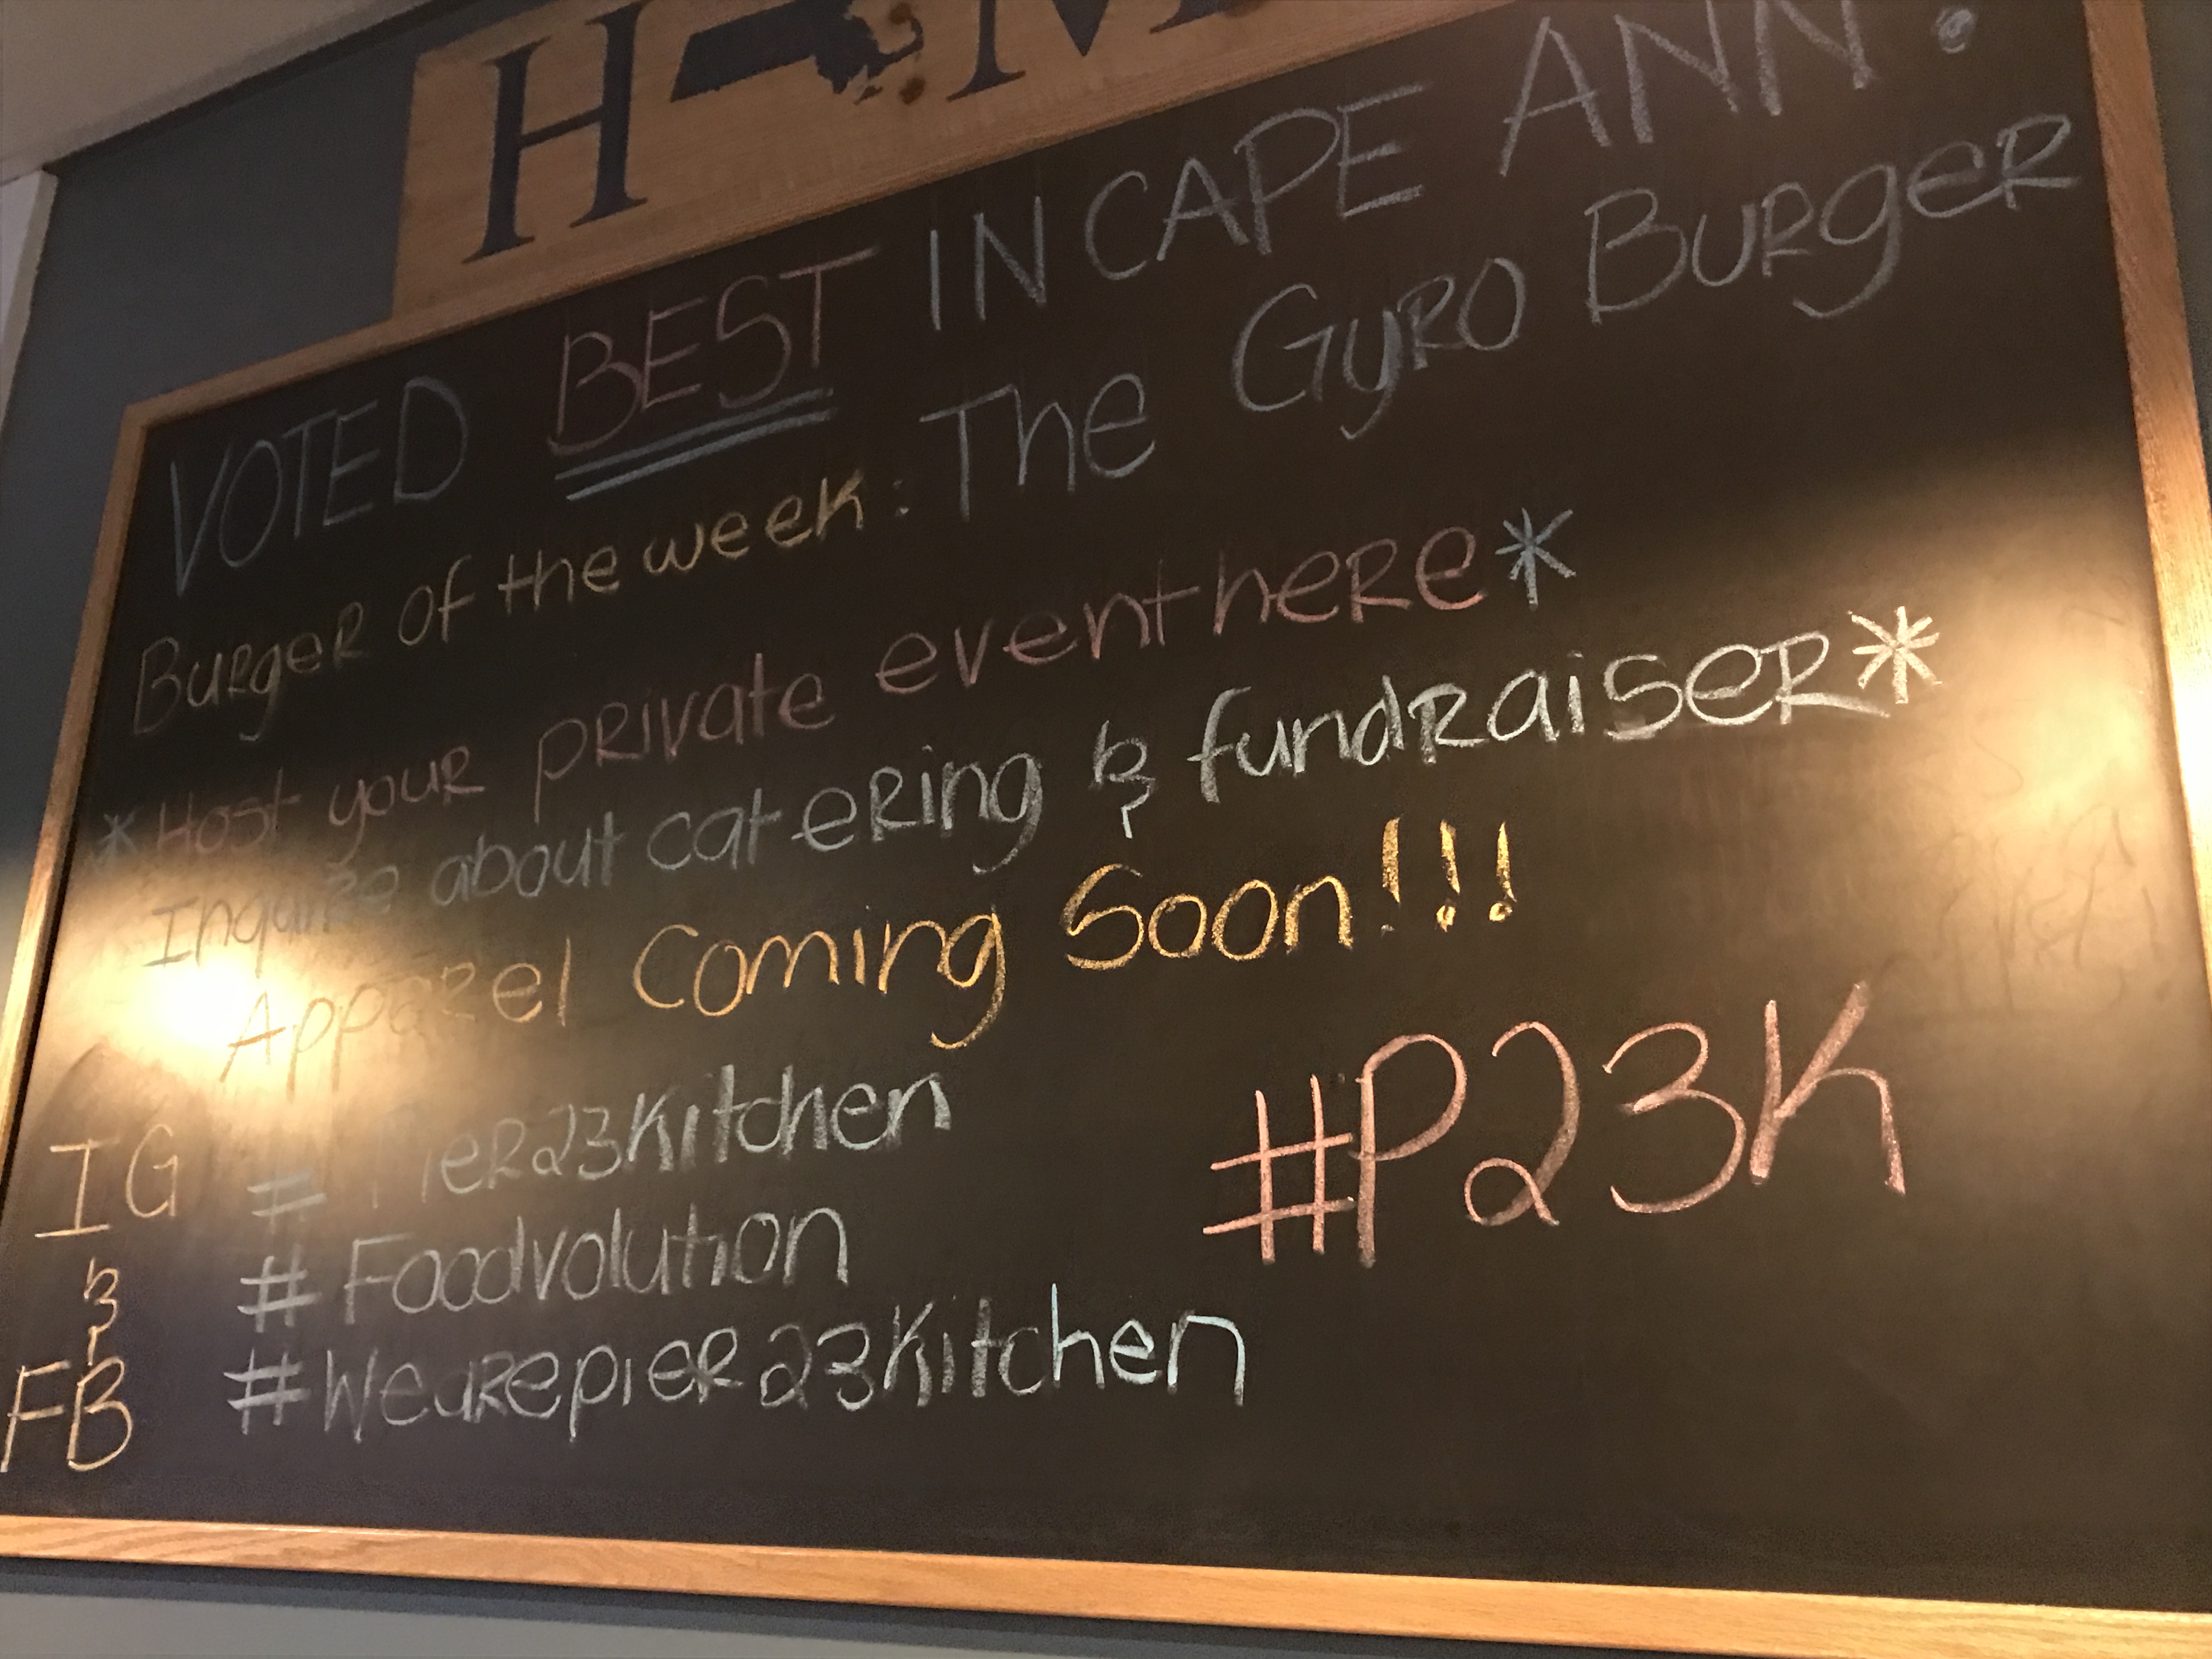 H M
VOTED BEST IN CAPE ANN!
Burger of the week: The Gyro Burger
*Host your private event here*
Inquire about catering & fundraiser*
Apparel Coming Soon!!!
IG # Pier23Kitchen
& # Foodvolution
FB # Wearepier23Kitchen
#P23K